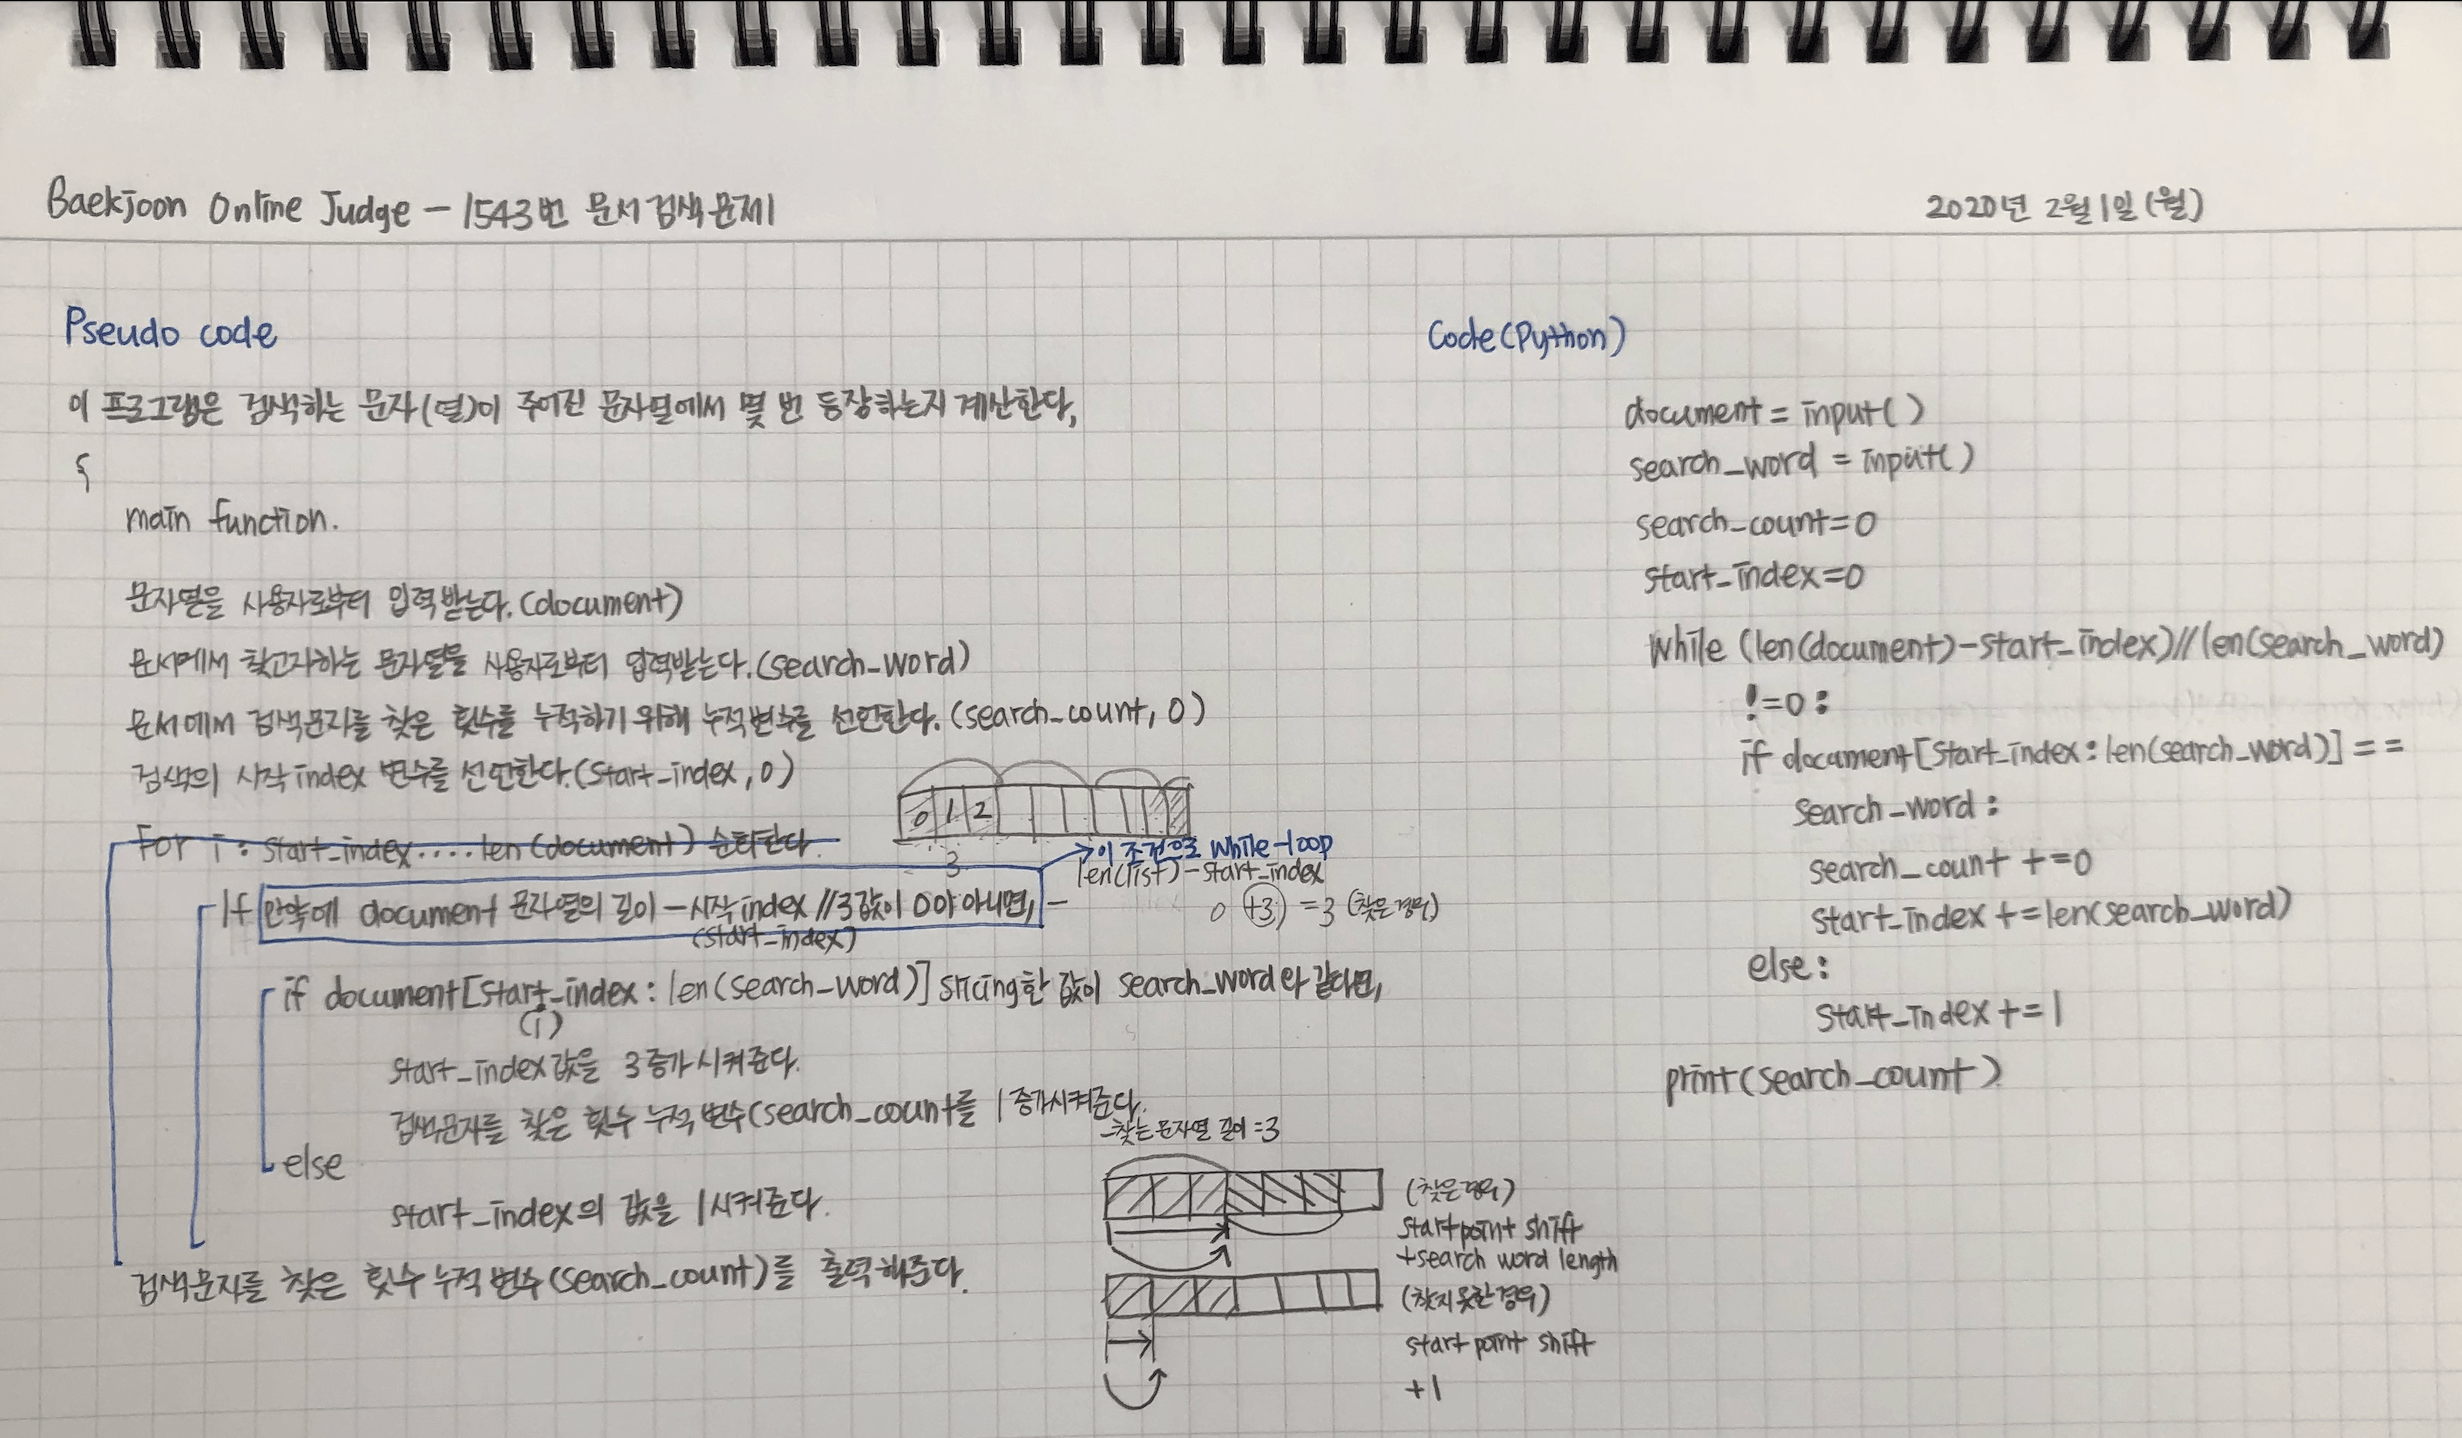 Baekjoon Online Judge - 1543번 문서 검색 문제
2020년 2월 1일 (월)
Pseudo code
이 프로그램은 검색하는 문자(열)이 주어진 문자열에서 몇 번 등장하는지 계산한다,
{
main function.
문자열을 사용자로부터 입력받는다.(document)
문서에서 찾고자하는 문자열을 사용자로부터 입력받는다.(search_word)
문서에서 검색문자를 찾은 횟수를 누적하기 위해 누적변수를 선언한다.(search_count, 0)
검색의 시작 index 변수를 선언한다.(start_index, 0)
0 1 2
3
For i : start_index....len(document) 순회한다.
→이 조건으로 while-loop
len(list)-start_index
If 만약에 document 문자열의 길이 - 시작index //3 값이 0이 아니면, -
(start_index)
0 +3 = 3 (찾은경우)
if document[start_index : len(search_word)] slicing한 값이 search_word와 같다면,
(i)
start_index값을 3증가시켜준다.
검색문자를 찾은 횟수 누적 변수(search_count를 1증가시켜준다.
else
start_index의 값을 1시켜준다.
검색문자를 찾은 횟수 누적 변수(search_count)를 출력해준다.
-찾는 문자열 길이=3
(찾은경우)
start point shift
+search word length
(찾지 못한 경우)
start point shift
+1
Code(Python)
document = input( )
search_word = input( )
search_count=0
start_index=0
while (len(document)-start_index)//len(search_word)
!=0 :
if document[start_index : len(search_word)] ==
search_word :
search_count +=0
start_index +=len(search_word)
else :
start_index +=1
print(search_count)